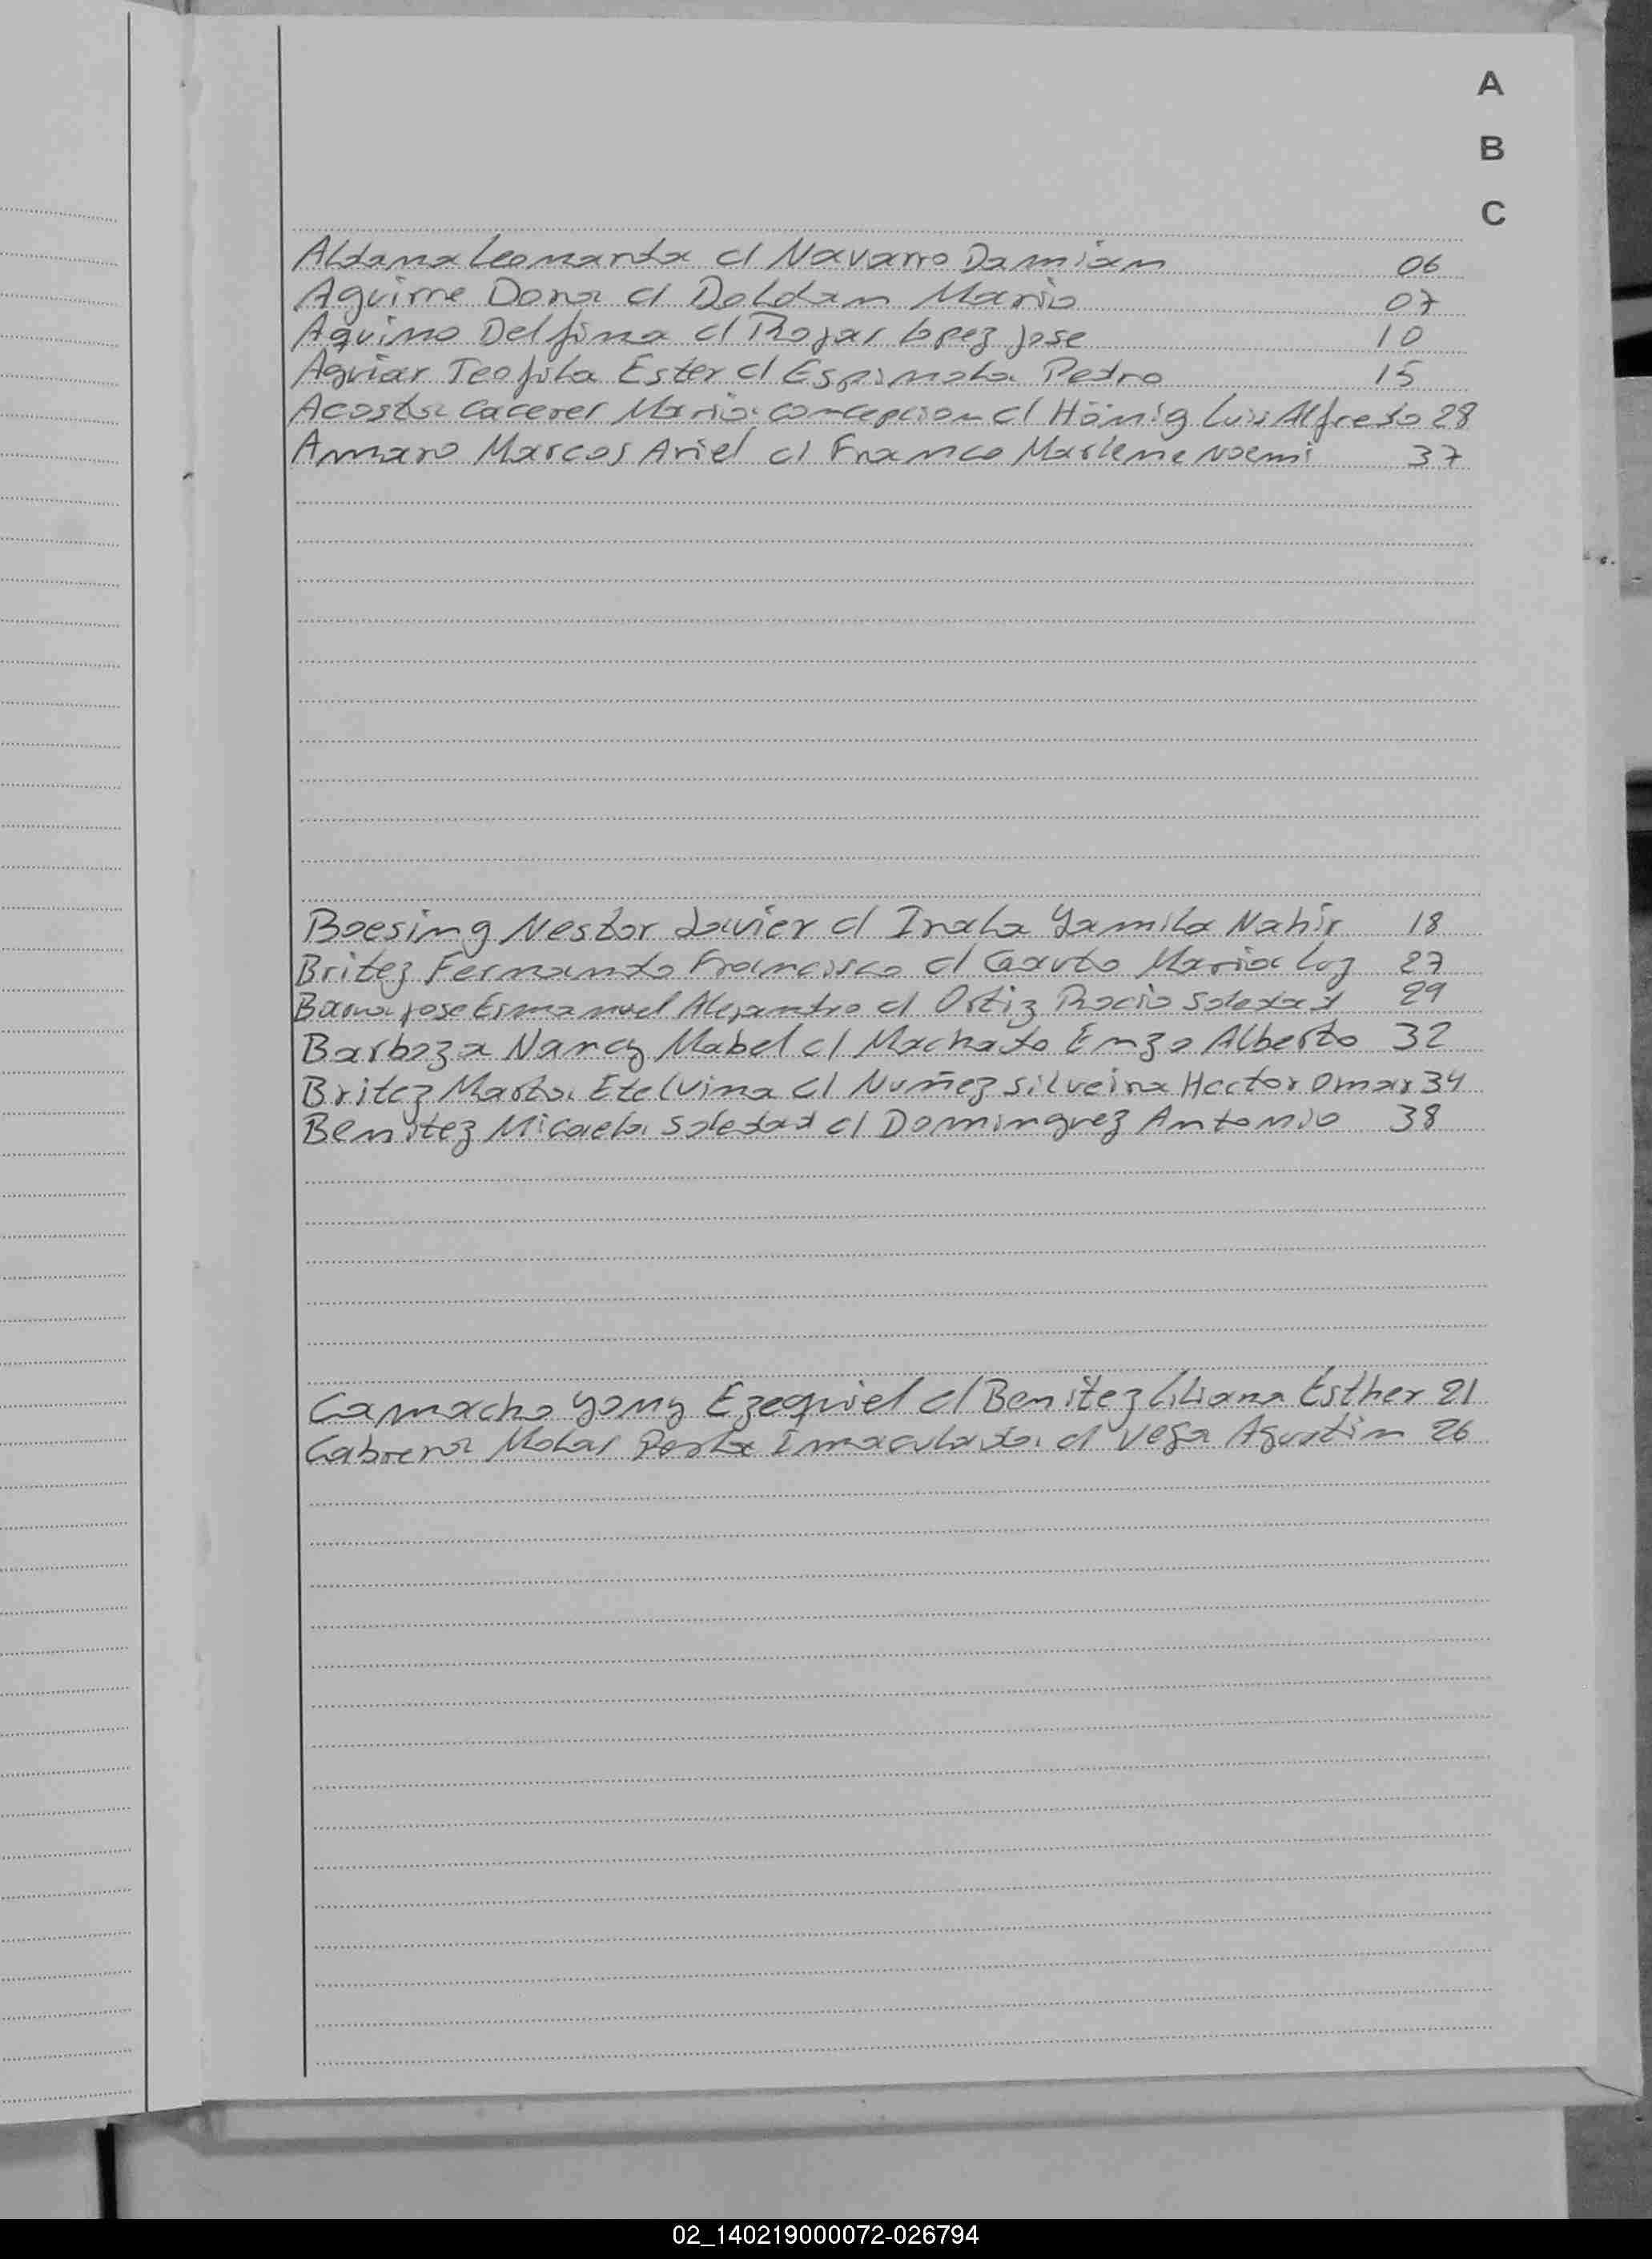 A
B
C
Aldama Leonarda c/ Navarro Damian 06
Aguirre Dora c/ Doldan Mario 07
Aquino Delfina c/ Rojas Lopez Jose 10
Aguiar Teofila Ester c/ Espinola Pedro 15
Acosta Caceres Maria Concepcion c/ Hönig Luis Alfredo 28
Amaro Marcos Ariel c/ Franco Marlene Noemi 37
Boesing Nestor Javier c/ Irala Yamila Nahir 18
Britez Fernando Francisco c/ Gauto Maria Luz 27
Jose Emanuel Alejandro c/ Ortiz Rocio Soledad 29
Barboza Nancy Mabel c/ Machado Enzo Alberto 32
Britez Marta Etelvina c/ Nuñez Silveira Hector Omar 34
Benitez Micaela Soledad c/ Dominguez Antonio 38
Camacho Yony Ezequiel c/ Benitez Liliana Esther 21
Cabrera Molas Perla Inmaculada c/ Vega Agustin 26
02_140219000072-026794